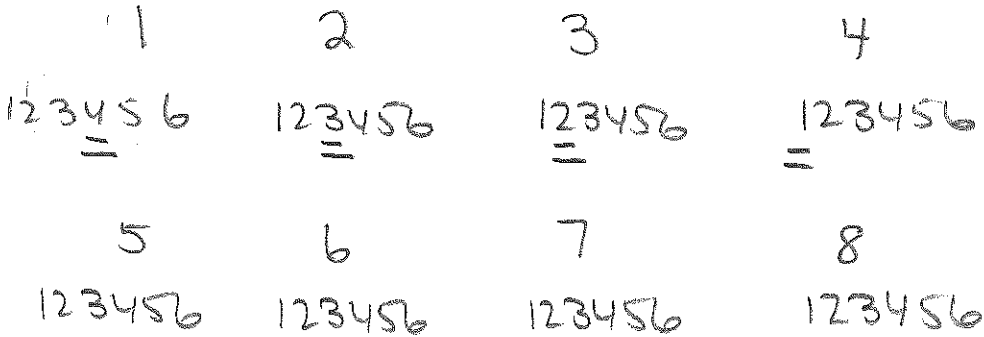 1 2 3 4
123456 123456 123456 123456
5 6 7 8
123456 123456 123456 123456